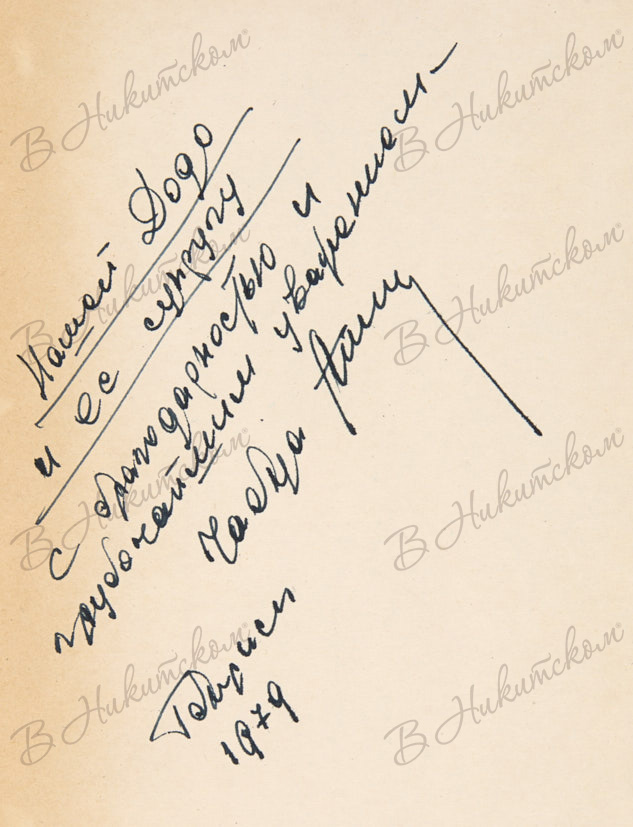 Нашей Додо
и ее супругу
с благодарностью и
глубочайшим уважением –
Чабуа
Тбилиси
1979
В Никитском
В Никитском
В Никитском
В Никитском
В Никитском
В Никитском
В Никитском
В Никитском